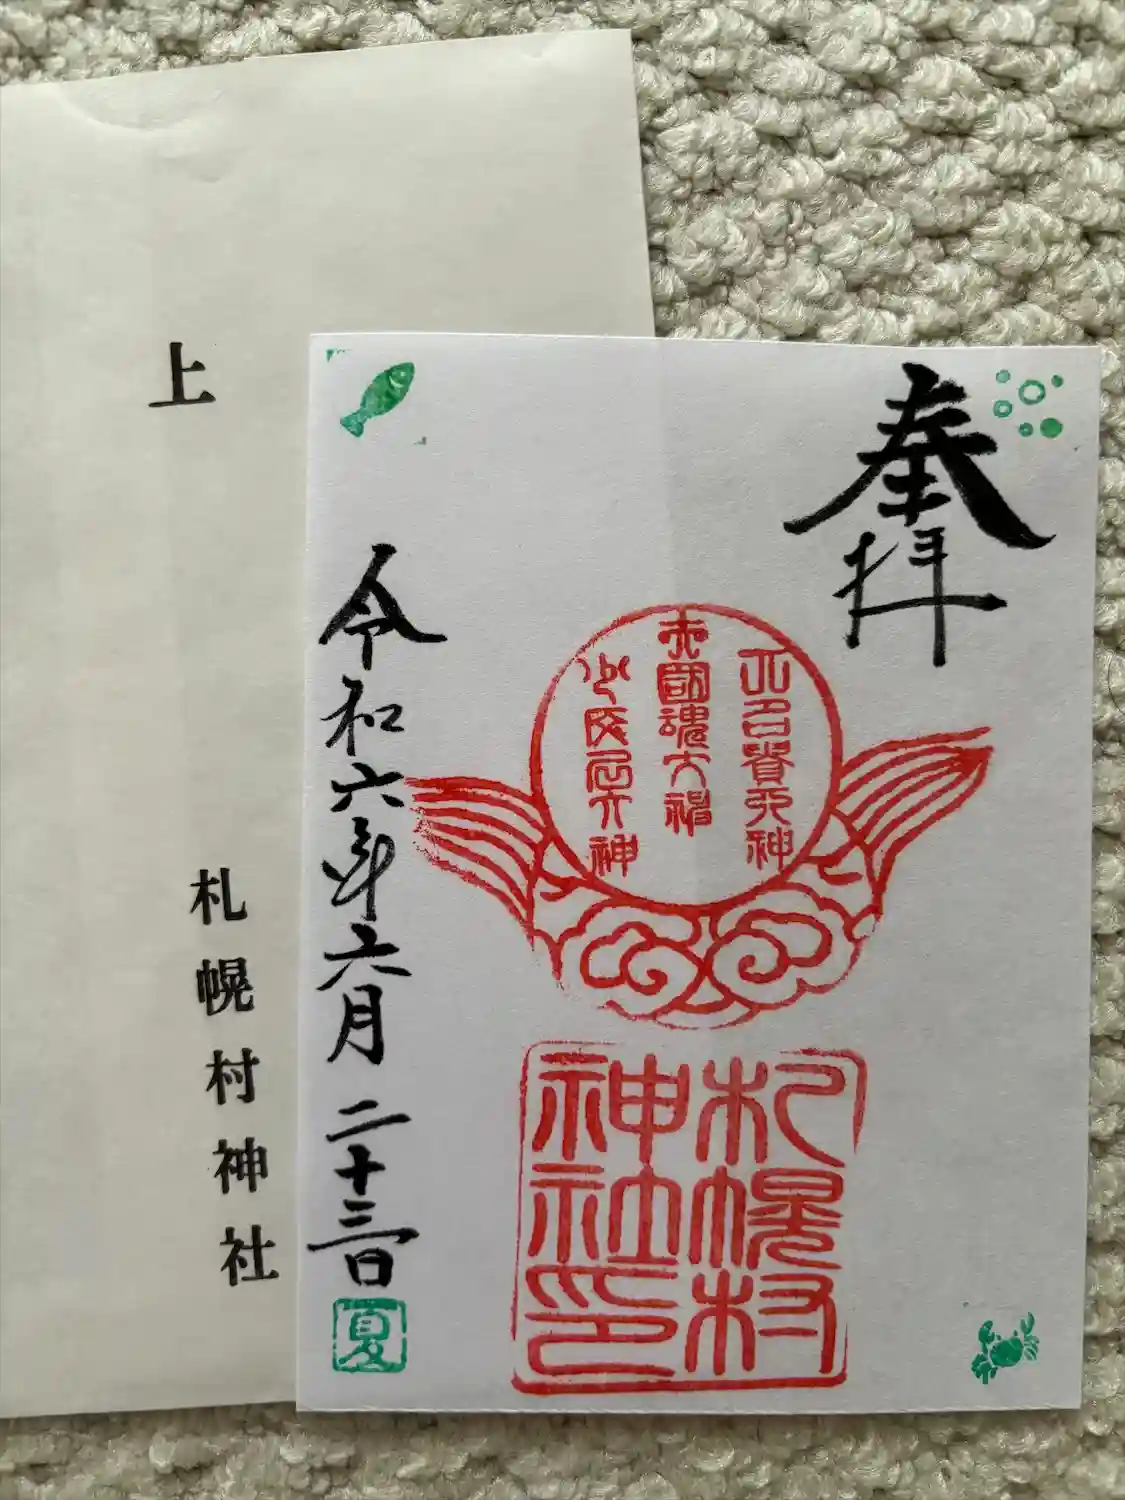 上
札幌村神社
奉拝
大名貴大神
大國魂大神
少彦名大神
札幌村
神社印
令和六年六月二十三日
夏